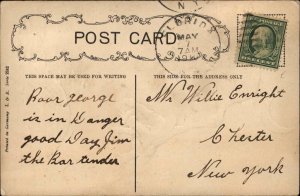 POST CARD
N.Y.
MAY
7 AM
THIS SPACE MAY BE USED FOR WRITING
THIS SIDE FOR THE ADDRESS ONLY
Poor george
is in Danger
good Day Jim
the Bar tender
Mr Willie Enright
Chester
New York
Printed in Germany